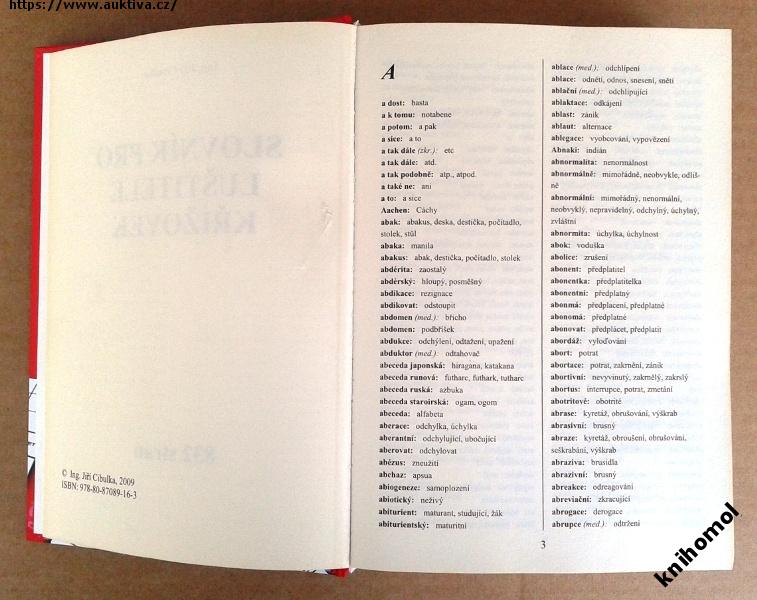 https://www.auktiva.cz/
SLOVNÍK PRO
LUŠTITELE
KŘÍŽO
832 stran
© Ing. Jiří Cibulka, 2009
ISBN: 978-80-87089-16-3
A
a dost: basta
a k tomu: notabene
a potom: a pak
a sice: a to
a tak dále (zkr.): etc
a tak dále: atd.
a tak podobně: atp., atpod.
a také ne: ani
a to: a sice
Aachen: Cáchy
abak: abakus, deska, destička, počitadlo,
stolek, stůl
abaka: manila
abakus: abak, destička, počitadlo, stolek
abdérita: zaostalý
abdérský: hloupý, posměšný
abdikace: rezignace
abdikovat: odstoupit
abdomen (med.): břicho
abdomen: podbřišek
abdukce: odchýlení, odtažení, upažení
abduktor (med.): odtahovač
abeceda japonská: hiragana, katakana
abeceda runová: futharc, futhark, tutharc
abeceda ruská: azbuka
abeceda staroirská: ogam, ogom
abeceda: alfabeta
aberace: odchylka, úchylka
aberantní: odchylující, ubočující
aberovat: odchylovat
abézus: zneužití
abchaz: apsua
abiogeneze: samoplození
abiotický: neživý
abiturient: maturant, studující, žák
abiturientský: maturitní
ablace (med.): odchlípení
ablace: odnětí, odnos, snesení, snětí
ablační (med.): odchlipující
ablaktace: odkájení
ablast: zánik
ablaut: alternace
ablegace: vyobcování, vypovězení
Abnaki: indián
abnormalita: nenormálnost
abnormálně: mimořádně, neobvykle, odliš-
ně
abnormální: mimořádný, nenormální,
neobvyklý, nepravidelný, odchylný, úchylný,
zvláštní
abnormita: úchylka, úchylnost
abok: voduška
abolice: zrušení
abonent: předplatitel
abonentka: předplatitelka
abonentní: předplatný
abonmá: předplacení, předplatné
abonomá: předplatné
abonovat: předplácet, předplatit
abordáž: vyloďování
abort: potrat
abortace: potrat, zakrnění, zánik
abortivní: nevyvinutý, zakrnělý, zakrslý
abortus: interrupce, potrat, zmetání
abotritové: obotrité
abrase: kyretáž, obrušování, výškrab
abrasivní: brusný
abraze: kyretáž, obroušení, obrušování,
seškrabání, výškrab
abraziva: brusidla
abrazivní: brusný
abreakce: odreagování
abreviační: zkracující
abrogace: derogace
abrupce (med.): odtržení
3
knihomol